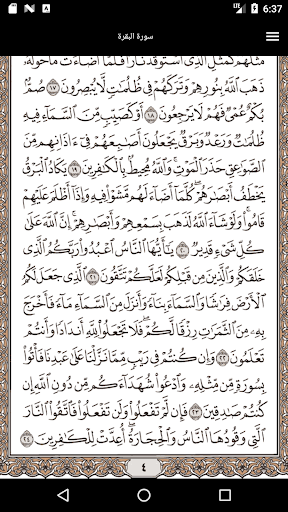 6:37
سورة البقرة
مَثَلُهُمْ كَمَثَلِ ٱلَّذِى ٱسْتَوْقَدَ نَارًا فَلَمَّآ أَضَآءَتْ مَا حَوْلَهُۥ
ذَهَبَ ٱللَّهُ بِنُورِهِمْ وَتَرَكَهُمْ فِى ظُلُمَٰتٍ لَّا يُبْصِرُونَ ١٧ صُمٌّۢ
بُكْمٌ عُمْىٌ فَهُمْ لَا يَرْجِعُونَ ١٨ أَوْ كَصَيِّبٍ مِّنَ ٱلسَّمَآءِ فِيهِ
ظُلُمَٰتٌ وَرَعْدٌ وَبَرْقٌ يَجْعَلُونَ أَصَٰبِعَهُمْ فِىٓ ءَاذَانِهِم مِّنَ
ٱلصَّوَٰعِقِ حَذَرَ ٱلْمَوْتِ ۚ وَٱللَّهُ مُحِيطٌۢ بِٱلْكَٰفِرِينَ ١٩ يَكَادُ ٱلْبَرْقُ
يَخْطَفُ أَبْصَٰرَهُمْ ۖ كُلَّمَآ أَضَآءَ لَهُم مَّشَوْا۟ فِيهِ وَإِذَآ أَظْلَمَ عَلَيْهِمْ
قَامُوا۟ ۚ وَلَوْ شَآءَ ٱللَّهُ لَذَهَبَ بِسَمْعِهِمْ وَأَبْصَٰرِهِمْ ۚ إِنَّ ٱللَّهَ عَلَىٰ
كُلِّ شَىْءٍ قَدِيرٌ ٢٠ يَٰٓأَيُّهَا ٱلنَّاسُ ٱعْبُدُوا۟ رَبَّكُمُ ٱلَّذِى
خَلَقَكُمْ وَٱلَّذِينَ مِن قَبْلِكُمْ لَعَلَّكُمْ تَتَّقُونَ ٢١ ٱلَّذِى جَعَلَ لَكُمُ
ٱلْأَرْضَ فِرَٰشًا وَٱلسَّمَآءَ بِنَآءً وَأَنزَلَ مِنَ ٱلسَّمَآءِ مَآءً فَأَخْرَجَ
بِهِۦ مِنَ ٱلثَّمَرَٰتِ رِزْقًا لَّكُمْ ۖ فَلَا تَجْعَلُوا۟ لِلَّهِ أَندَادًا وَأَنتُمْ
تَعْلَمُونَ ٢٢ وَإِن كُنتُمْ فِى رَيْبٍ مِّمَّا نَزَّلْنَا عَلَىٰ عَبْدِنَا فَأْتُوا۟
بِسُورَةٍ مِّن مِّثْلِهِۦ وَٱدْعُوا۟ شُهَدَآءَكُم مِّن دُونِ ٱللَّهِ إِن
كُنتُمْ صَٰدِقِينَ ٢٣ فَإِن لَّمْ تَفْعَلُوا۟ وَلَن تَفْعَلُوا۟ فَٱتَّقُوا۟ ٱلنَّارَ
ٱلَّتِى وَقُودُهَا ٱلنَّاسُ وَٱلْحِجَارَةُ ۖ أُعِدَّتْ لِلْكَٰفِرِينَ ٢٤
٤